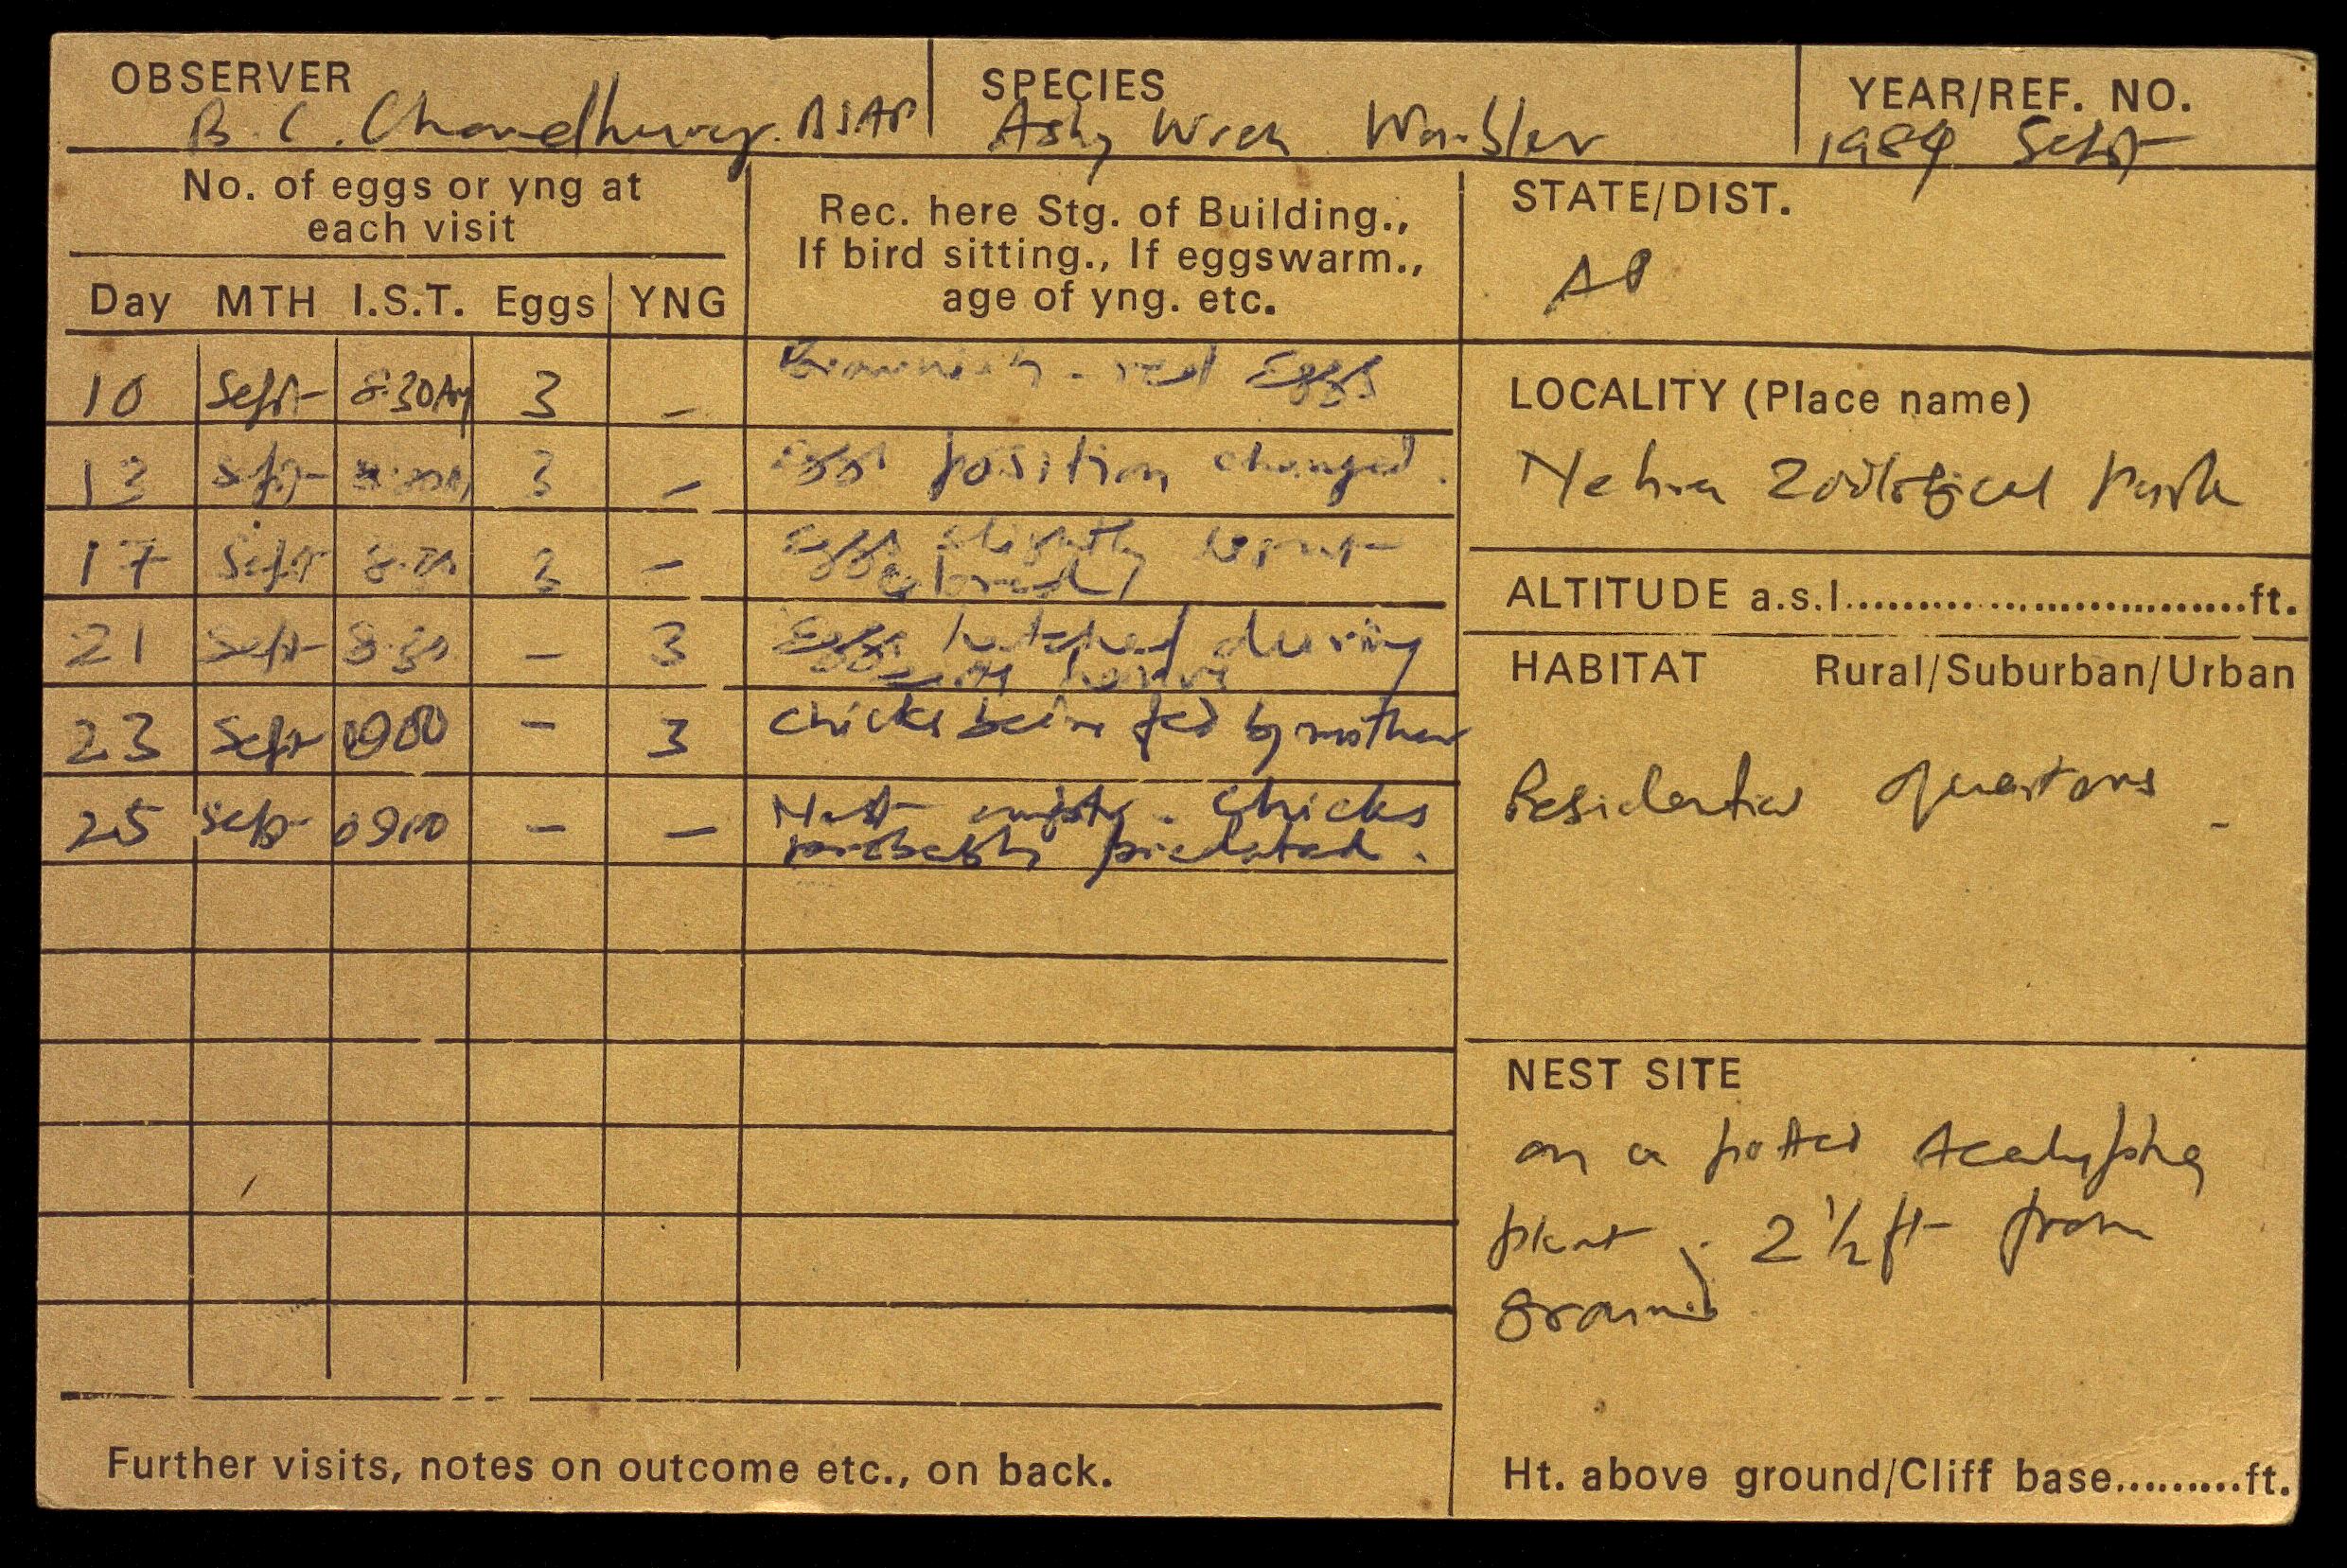 OBSERVER
B. C. Choudhury. BSAP
SPECIES
Ashy Wren Warbler
YEAR/REF. NO.
1984 Sept
No. of eggs or yng at
each visit
Day MTH I.S.T. Eggs YNG
Rec. here Stg. of Building.,
If bird sitting., If eggswarm.,
age of yng. etc.
10 Sept 8.30AM 3 – Brownish-red Eggs
Sept 3 – Eggs position changed.
17 Sept 3 – Eggs slightly
21 Sept 8.30 – 3 Eggs hatched during
hours
23 Sept 0900 – 3 Chicks being fed by mother
25 Sept 0900 – – Nest empty. Chicks
probably predated.
Further visits, notes on outcome etc., on back.
STATE/DIST.
AP
LOCALITY (Place name)
Nehru Zoological Park
ALTITUDE a.s.l..............................ft.
HABITAT Rural/Suburban/Urban
Residential Quarters
NEST SITE
on a potted Acalypha
plant, 2 1/2 ft from
ground
Ht. above ground/Cliff base..........ft.